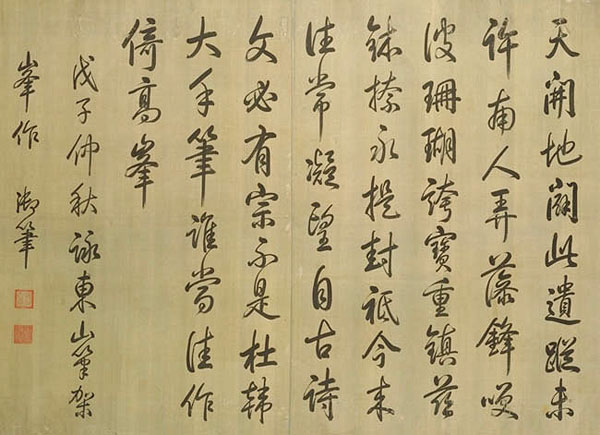 天開地闢此遺蹤未
許庸人弄藻鋒咲
彼珊瑚誇寶重鎮茲
捺永提封祗今來
往常凝望自古詩
文必有宗不是杜韓
大手筆誰當佳作
倚高峯
戊子仲秋詠東山筆架
峯作 御筆